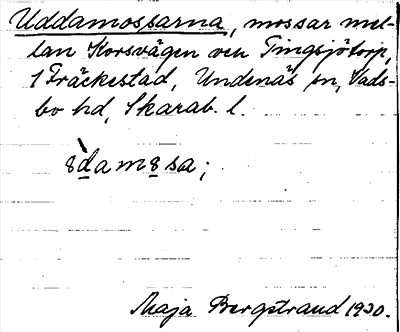 Uddamossarna, mossar mel-
lan Korsvägen och Tingsjötorp,
1 Fräckestad, Undenäs sn, Vads-
bo hd, Skarab. l.
8̀damosa;
Maja Bergstrand 1930.